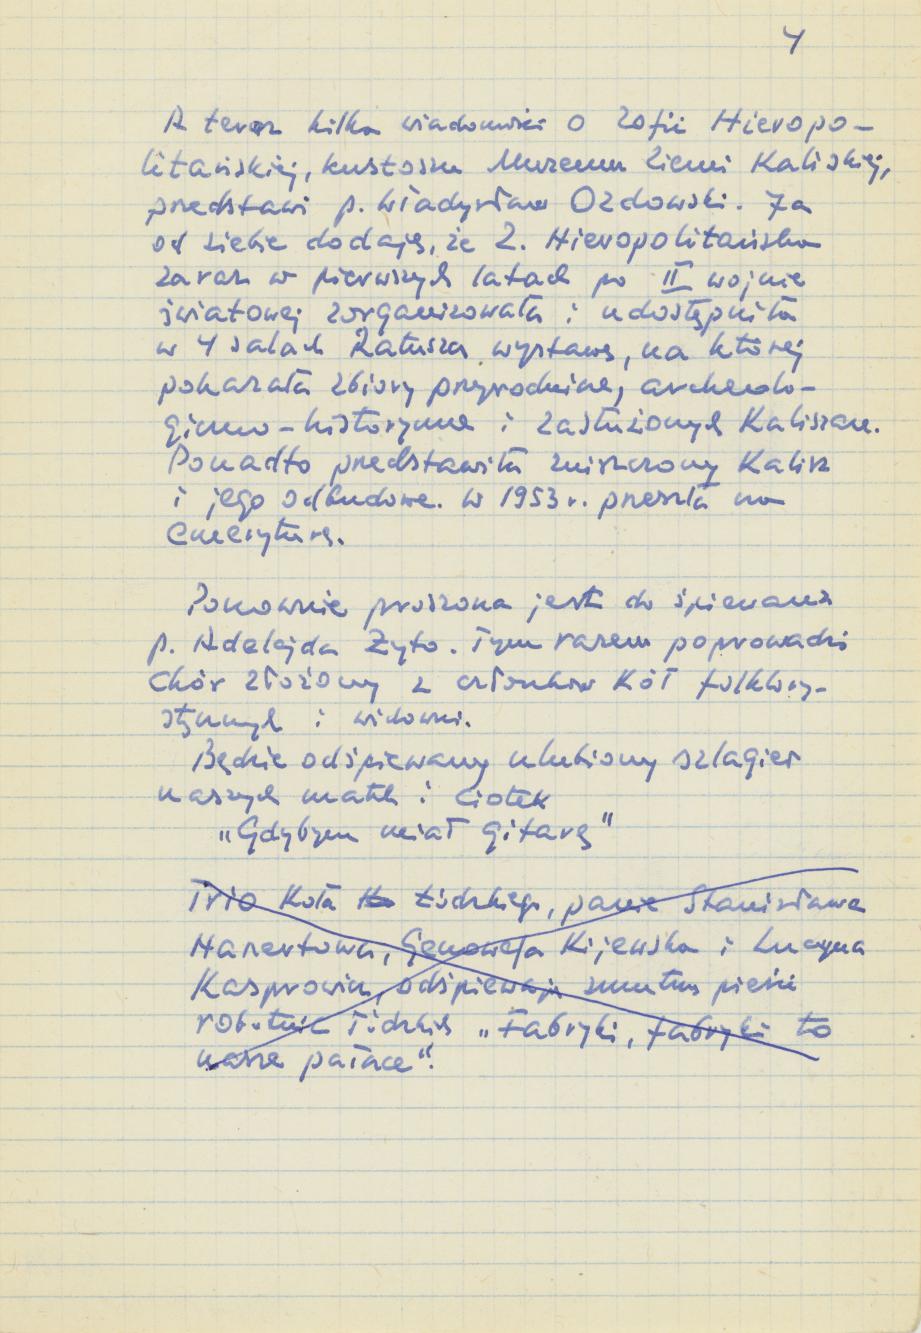 4
A teraz kilka wiadomości o Zofii Hieropo-
litańskiej, kustoszu Muzeum Ziemi Kaliskiej,
przedstawi p. Władysław Ozdowski. Ja
od siebie dodaję, że Z. Hieropolitańska
zaraz w pierwszych latach po II wojnie
światowej zorganizowała i udostępniła
w 4 salach Ratusza wystawę, na której
pokazała zbiory przyrodnicze, archeolo-
giczno-historyczne i zasłużonych Kaliszan.
Ponadto przedstawiła zniszczony Kalisz
i jego odbudowę. W 1953 r. przeszła na
emeryturę.
Ponownie proszona jest do śpiewania
p. Adelajda Żyto. Tym razem poprowadzi
chór złożony z członków Kół folklory-
stycznych i widowni.
Będzie odśpiewany ulubiony szlagier
naszych matek i ciotek
„Gdybym miał gitarę"
Trio Koła Łódzkiego, panie Stanisława
Hanertowa, Genowefa Kijewska i Lucyna
Kasprowicz, odśpiewają smutną pieśń
robotnic łódzkich „Fabryki, fabryki to
nasze pałace".